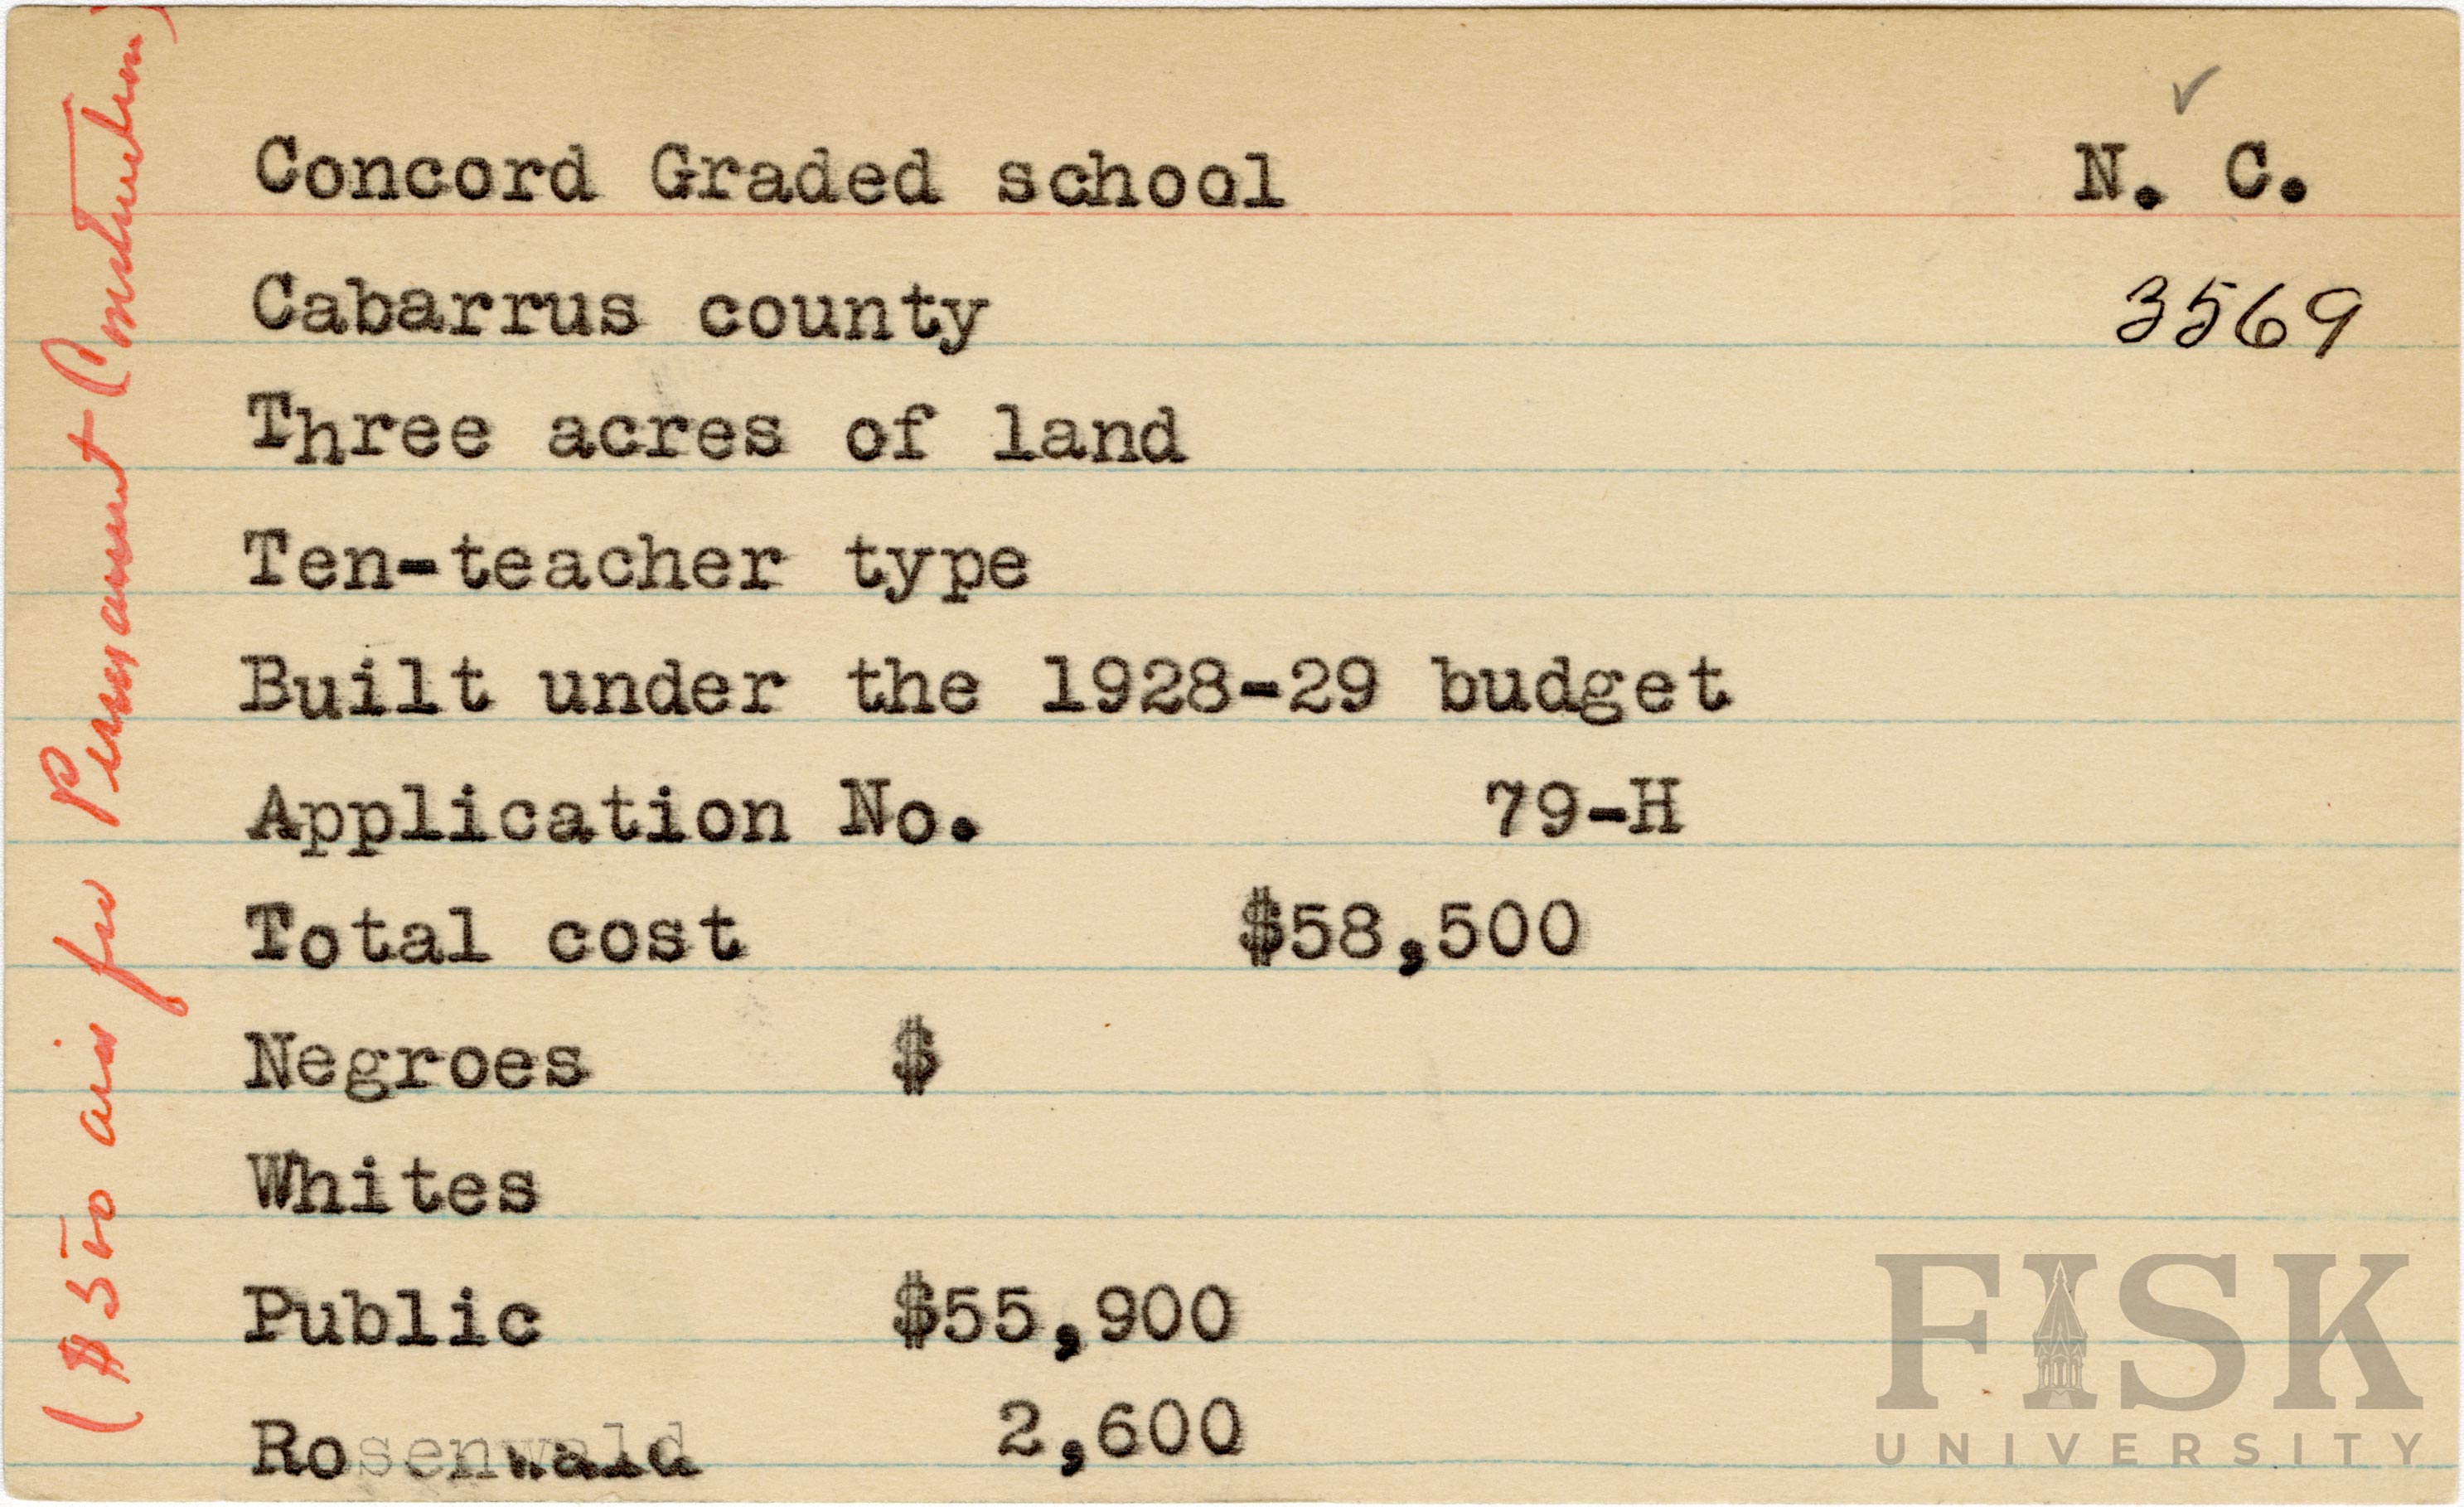 Concord Graded school N. C.
Cabarrus county 3569
Three acres of land
Ten-teacher type
Built under the 1928-29 budget
Application No. 79-H
Total cost $58,500
Negroes $
Whites
Public $55,900
Rosenwald 2,600
($500 aid for Permanent Construction)
FISK
UNIVERSITY